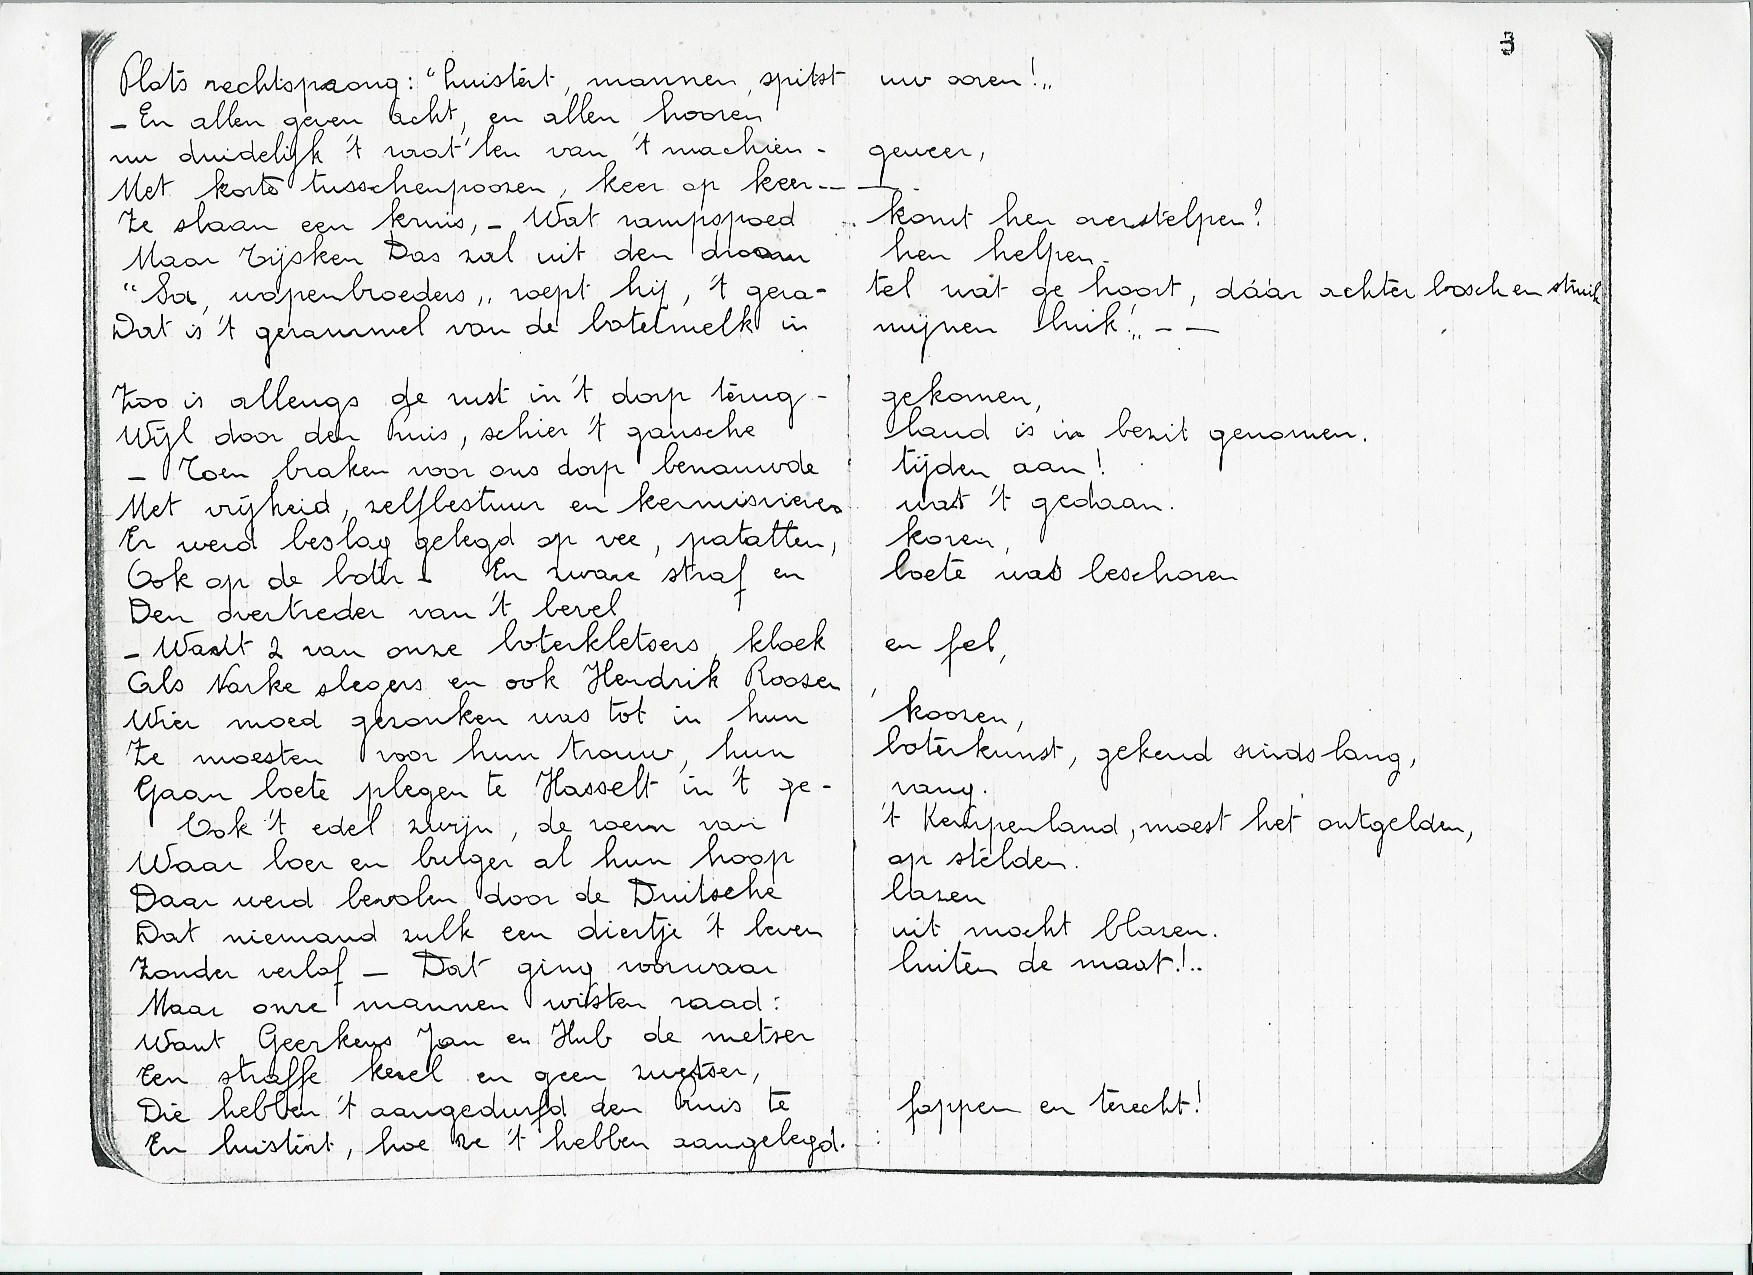 3
Plots rechtsprong: "huistert, mannen, spitst uw ooren!„
- En allen geven acht, en allen hooren
nu duidelijk 't raat'len van 't machien- geweer,
Met korte tusschenpoozen, keer op keer-- —.
Ze slaan een kruis, - Wat rampspoed komt hen overstelpen?
Maar Tijsken Das zal uit den droom hen helpen.
"Sa, wapenbroeders„ roept hij, 't gera- tel wàt ge hoort, dáár achter bosch en struik
Dat is 't gerammel van de botelmelk in mijnen buik!„ - —
Zoo is allengs de rust in 't dorp terug- gekomen,
Wijl door den Puis, schier 't gansche land is in bezit genomen.
- Toen braken voor ons dorp benauwde tijden aan!
Met vrijheid, zelfbestuur en kermisvieren was 't gedaan.
Er werd beslag gelegd op vee, patatten, koren,
Ook op de botter - En zware straf en boete was beschoren
Den overtreder van 't bevel
- Want 2 van onze boterkletsers, kloek en fel,
Als Narke slegers en ook Hendrik Roosen,
Wier moed gezonken was tot in hun koozen,
Ze moesten voor hun trouw, hun boterkunst, gekend sinds lang,
Gaan boete plegen te Hasselt in 't ge- vang.
Ook 't edel zwijn, de roem van 't Kempenland, moest het ontgelden,
Waar boer en burger al hun hoop op stelden.
Daar werd bevolen door de Duitsche bazen
Dat niemand zulk een diertje 't leven uit mocht blazen.
Zonder verlof - Dat ging voorwaar buiten de maat!..
Maar onze mannen wisten raad:
Want Geerkens Jan en Hub de metser
Een straffe kerel en geen zwetser,
Die hebben 't aangedurfd den Puis te foppen en terecht!
En luistert, hoe ze 't hebben aangelegd. :